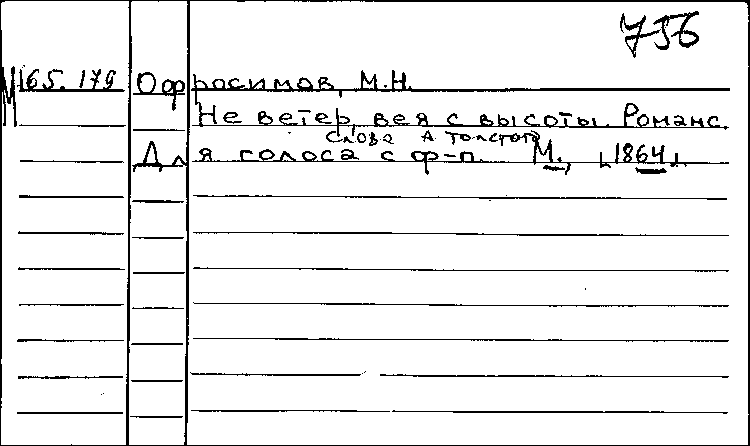 756
М 165.179 Оффросимов, М.Н.
Не ветер, вея с высоты. Романс.
Слова А Толстого
Для голоса с ф-п. М., [1864].